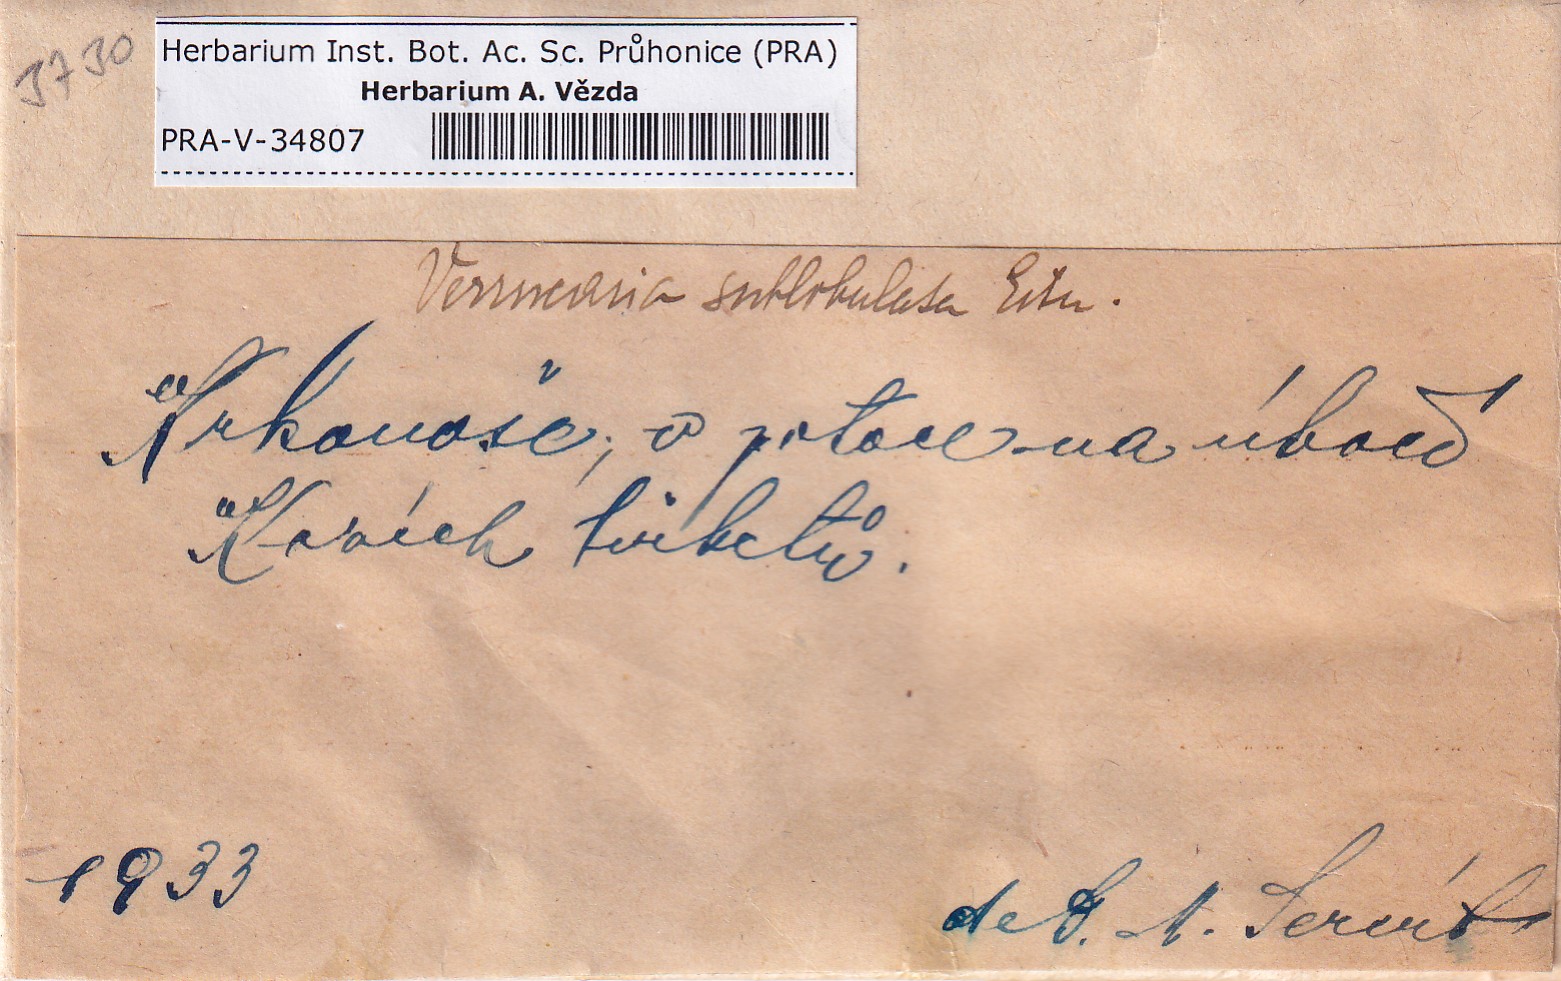 3730
Herbarium Inst. Bot. Ac. Sc. Průhonice (PRA)
Herbarium A. Vězda
PRA-V-34807
Verrucaria sublobulata Eitn.
Krkonoše, v potoce na úbočí
Kozích hřbetů.
1933
A. Servít